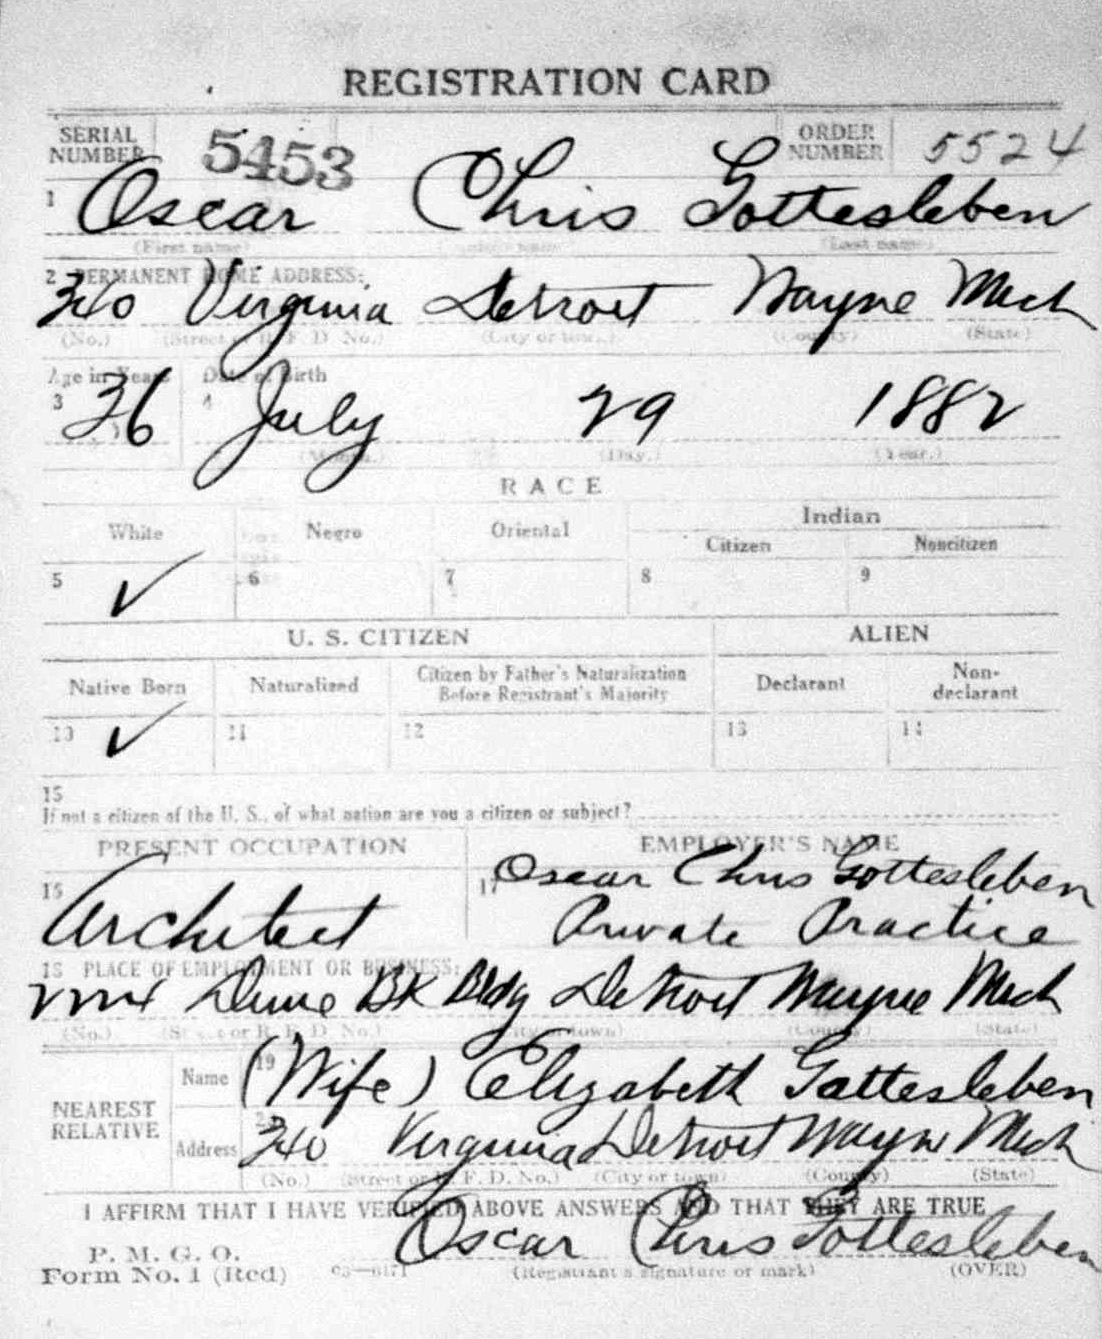 REGISTRATION CARD
SERIAL NUMBER 5453 ORDER NUMBER 5524
1 Oscar Chris Gottesleben
(First name) (Last name)
2 PERMANENT HOME ADDRESS:
340 Virginia Detroit Wayne Mich
(No.) (Street or R. F. D. No.) (City or town) (County) (State)
Age in Years Date of Birth
3 36 4 July 29 1882
(Month.) (Day.) (Year.)
RACE
White Negro Oriental Indian
Citizen Noncitizen
5 ✓ 6 7 8 9
U. S. CITIZEN ALIEN
Native Born Naturalized Citizen by Father's Naturalization Before Registrant's Majority Declarant Non-declarant
10 ✓ 11 12 13 14
15
If not a citizen of the U. S., of what nation are you a citizen or subject?
PRESENT OCCUPATION EMPLOYER'S NAME
16 Architect 17 Oscar Chris Gottesleben
Private Practice
18 PLACE OF EMPLOYMENT OR BUSINESS:
Dime BK Bldg Detroit Wayne Mich
(No.) (Street or R. F. D. No.) (City or town) (County) (State)
NEAREST RELATIVE
Name 19 (Wife) Elizabeth Gottesleben
Address 340 Virginia Detroit Wayne Mich
(No.) (Street or R. F. D. No.) (City or town) (County) (State)
I AFFIRM THAT I HAVE VERIFIED ABOVE ANSWERS AND THAT THEY ARE TRUE
P. M. G. O.
Form No. 1 (Red) 03—6171 Oscar Chris Gottesleben
(Registrant's signature or mark) (OVER)